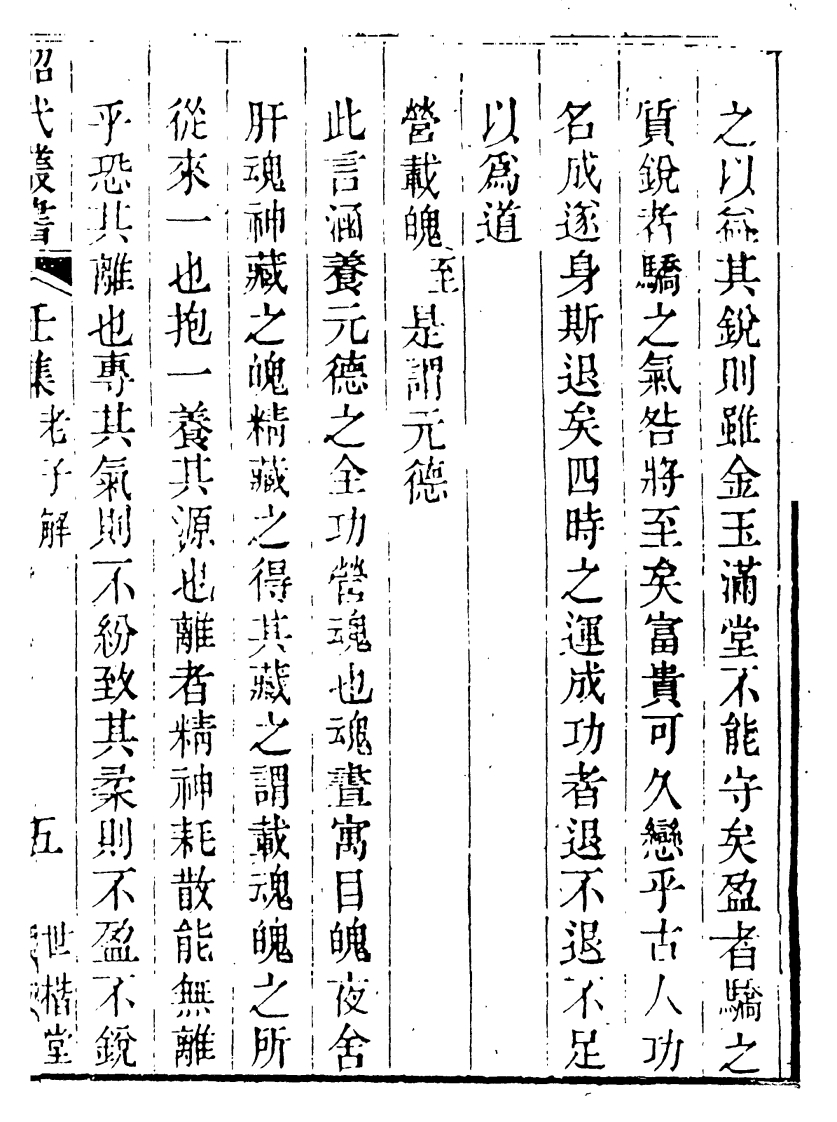 之以益其銳則雖金玉滿堂不能守矣盈者驕之
質銳者驕之氣咎將至矣富貴可久戀乎古人功
名成遂身斯退矣四時之運成功者退不退不足
以爲道
營載魄至是謂元德
此言涵養元德之全功營魂也魂晝寓目魄夜舍
肝魂神藏之魄精藏之得其藏之謂載魂魄之所
從來一也抱一養其源也離者精神耗散能無離
乎恐其離也專其氣則不紛致其柔則不盈不銳
昭代叢書 壬集 老子解 五 世楷堂